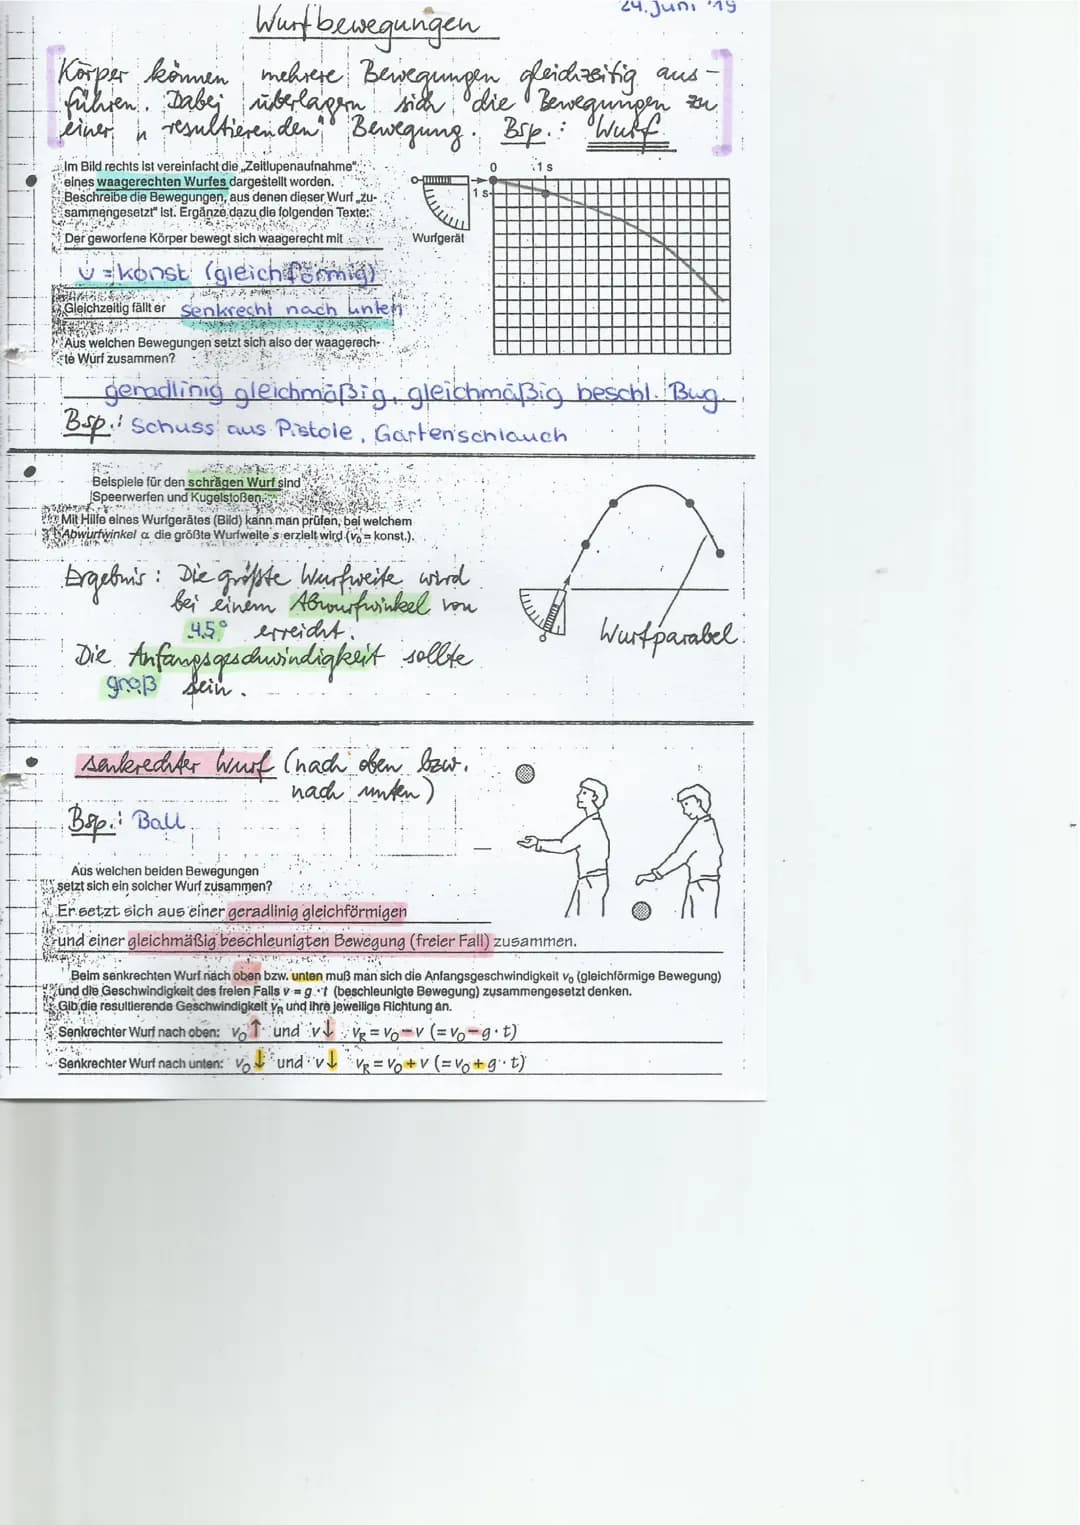 24. Juni '19
Wurfbewegungen
Körper können mehrere Bewegungen gleichzeitig aus-
führen. Dabei überlagern sich die Bewegungen zu
einer "resultierenden" Bewegung. Bsp.: Wurf
Im Bild rechts ist vereinfacht die „Zeitlupenaufnahme"
eines waagerechten Wurfes dargestellt worden.
Beschreibe die Bewegungen, aus denen dieser Wurf „zu-
sammengesetzt" ist. Ergänze dazu die folgenden Texte:
0 1 s
1 s
Wurfgerät
Der geworfene Körper bewegt sich waagerecht mit
v = konst. (gleichförmig)
Gleichzeitig fällt er senkrecht nach unten
Aus welchen Bewegungen setzt sich also der waagerech-
te Wurf zusammen?
geradlinig gleichmäßig, gleichmäßig beschl. Bwg.
Bsp.: Schuss aus Pistole, Gartenschlauch
Beispiele für den schrägen Wurf sind
Speerwerfen und Kugelstoßen.
Mit Hilfe eines Wurfgerätes (Bild) kann man prüfen, bei welchem
Abwurfwinkel α die größte Wurfweite s erzielt wird (v₀ = konst.).
Ergebnis: Die größte Wurfweite wird
bei einem Abwurfwinkel von
45° erreicht.
Die Anfangsgeschwindigkeit sollte
groß sein.
Wurfparabel
senkrechter Wurf (nach oben bzw.
nach unten)
Bsp.: Ball
Aus welchen beiden Bewegungen
setzt sich ein solcher Wurf zusammen?
Er setzt sich aus einer geradlinig gleichförmigen
und einer gleichmäßig beschleunigten Bewegung (freier Fall) zusammen.
Beim senkrechten Wurf nach oben bzw. unten muß man sich die Anfangsgeschwindigkeit v₀ (gleichförmige Bewegung)
und die Geschwindigkeit des freien Falls v = g · t (beschleunigte Bewegung) zusammengesetzt denken.
Gib die resultierende Geschwindigkeit v_R und ihre jeweilige Richtung an.
Senkrechter Wurf nach oben: v₀↑ und v↓ v_R = v₀ − v (= v₀ − g · t)
Senkrechter Wurf nach unten: v₀↓ und v↓ v_R = v₀ + v (= v₀ + g · t)